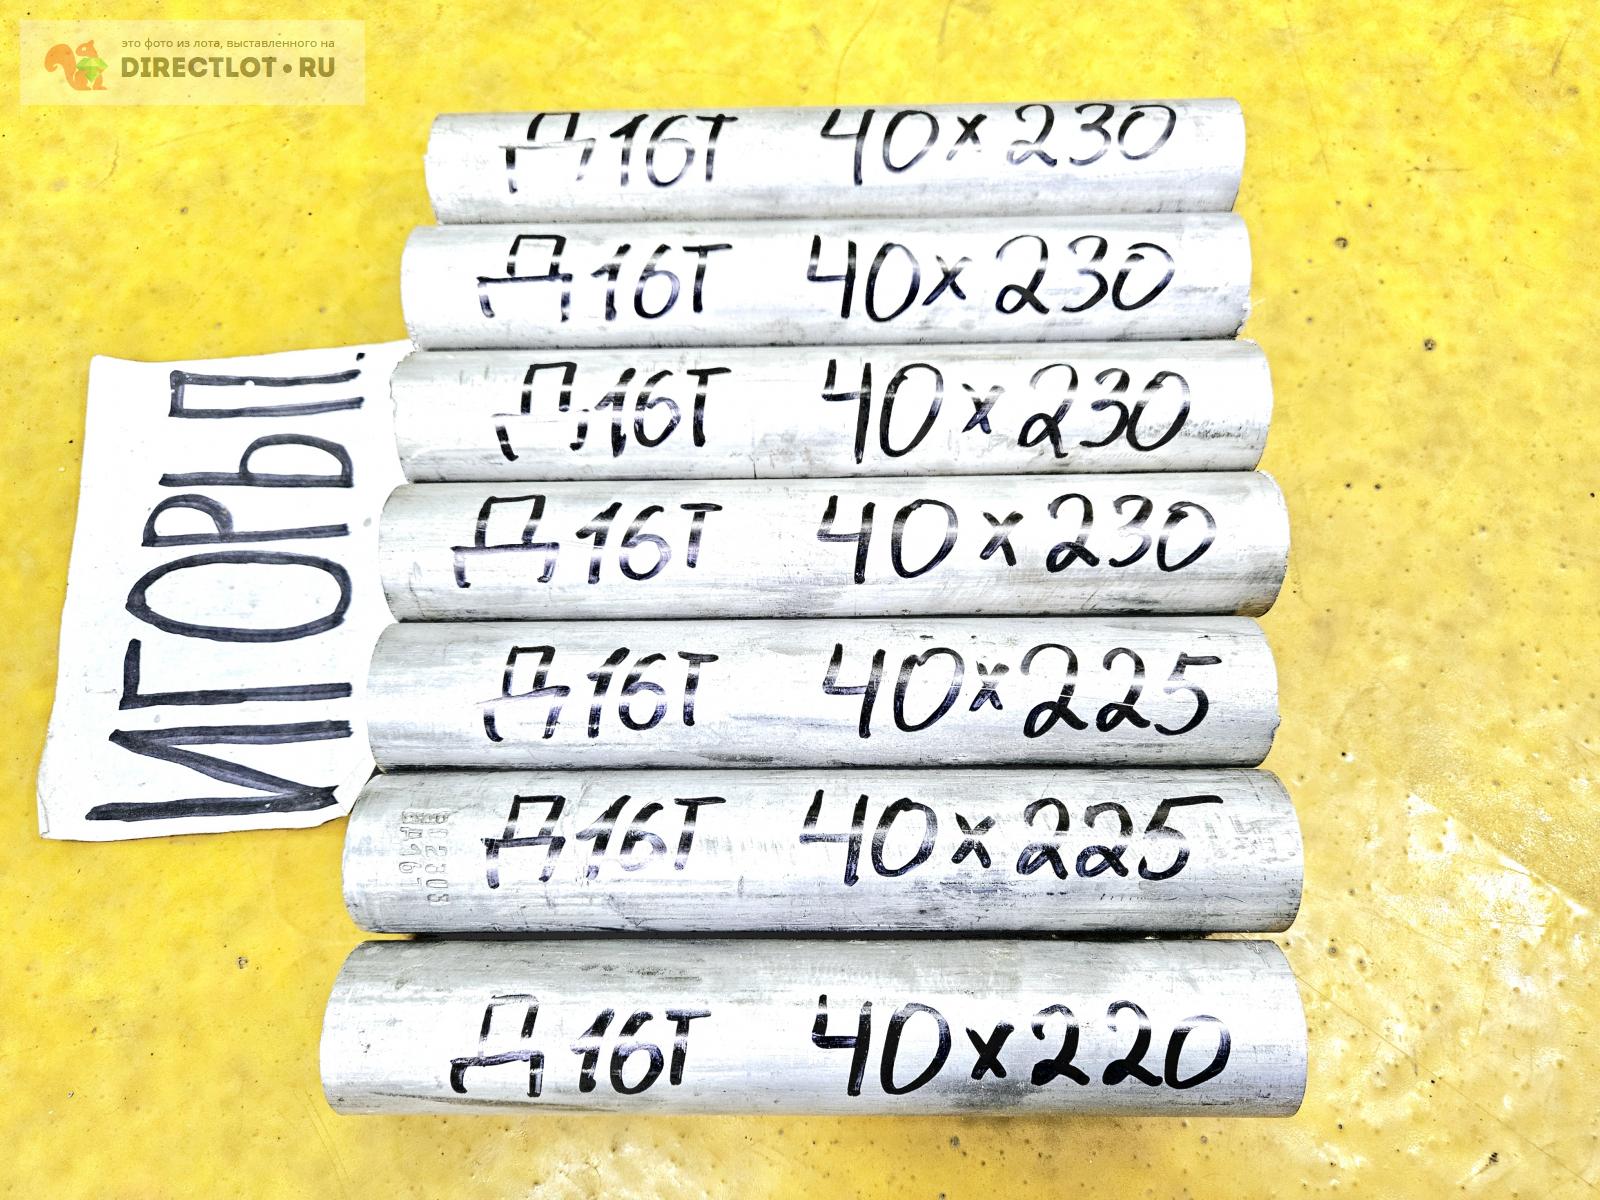 это фото из лота, выставленного на
DIRECTLOT•RU
Д16Т 40х230
Д16Т 40х230
Д16Т 40х230
Д16Т 40х230
Д16Т 40х225
Д16Т 40х225
Д16Т 40х220
ИГОРЬП.